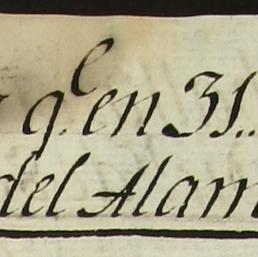 q.e en 31..
del Alam